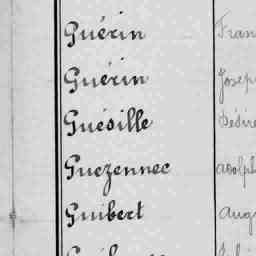 Guérin Fran
Guérin Josep
Guésille Désiré
Guezennec adolph
Guibert Aug